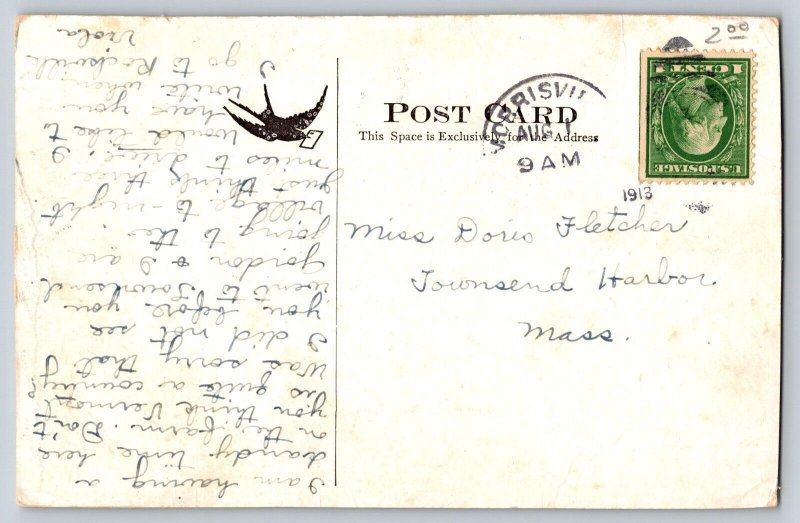 2 00
POST CARD
This Space is Exclusively for the Address
MORRISVI
AUG 1
9 AM
1913
U.S. POSTAGE
1 CENT 1
Miss Doris Fletcher
Townsend Harbor
Mass.
I am having a
dandy time here
on the farm. Don't
you think Vermont
is quite a country?
Was sorry that
I did not see
you before you
went to Townsend
Gordon & I are
going to the
village to-night
just think three
miles to drive, I
would like to
have you
write when
I
go to Rockville
Viola